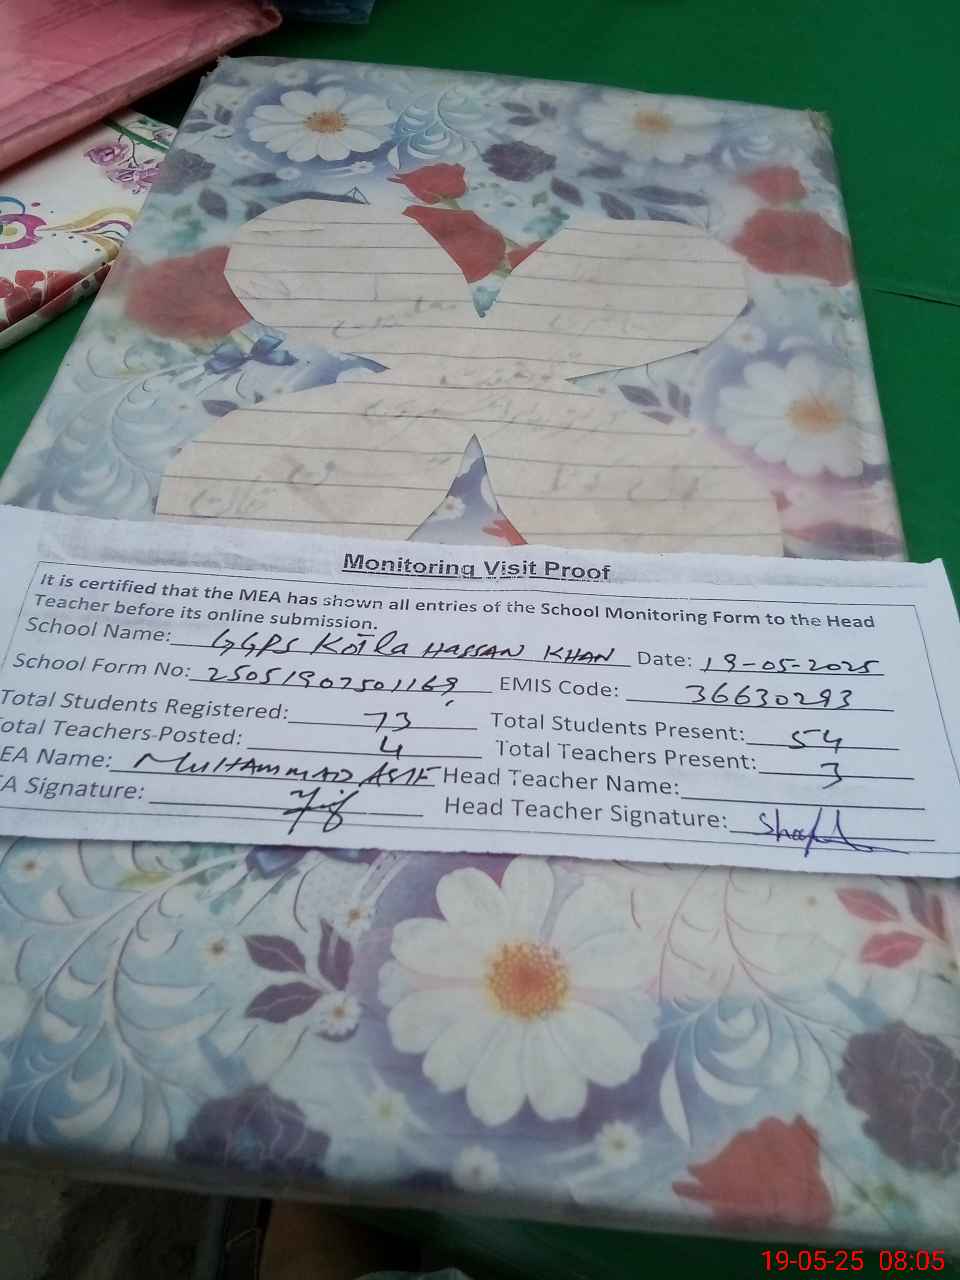 Monitoring Visit Proof
It is certified that the MEA has shown all entries of the School Monitoring Form to the Head
Teacher before its online submission.
School Name: GGPS Kotla HASSAN KHAN Date: 19-05-2025
School Form No: 25051907501169 EMIS Code: 36630293
Total Students Registered: 73 Total Students Present: 54
otal Teachers Posted: 4 Total Teachers Present: 3
EA Name: MUHAMMAD ASIF Head Teacher Name:
EA Signature: Head Teacher Signature:
19-05-25 08:05